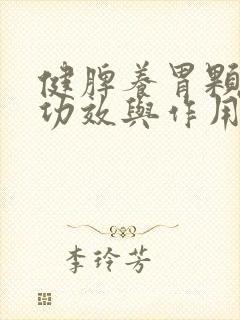 健脾養胃顆
功效與作用
李玲芳